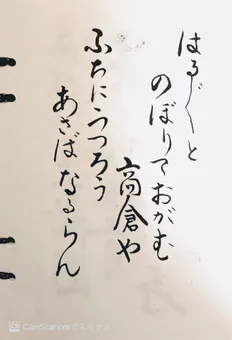 はる〴〵と
のぼりておがむ
高倉や
ふちにうつろう
あさばなるらん
CamScannerでスキャン